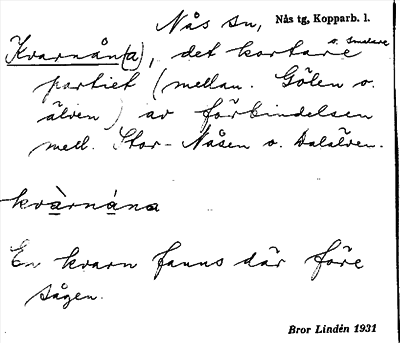 Nås sn, Nås tg, Kopparb. l.
Kvarnån(a), det kortare o. smalare
partiet (mellan Gölen o.
älven) av förbindelsen
mell. Stor-Nåsen o. Dalälven.
kvàrnána
En kvarn fanns där före
sågen.
Bror Lindén 1931